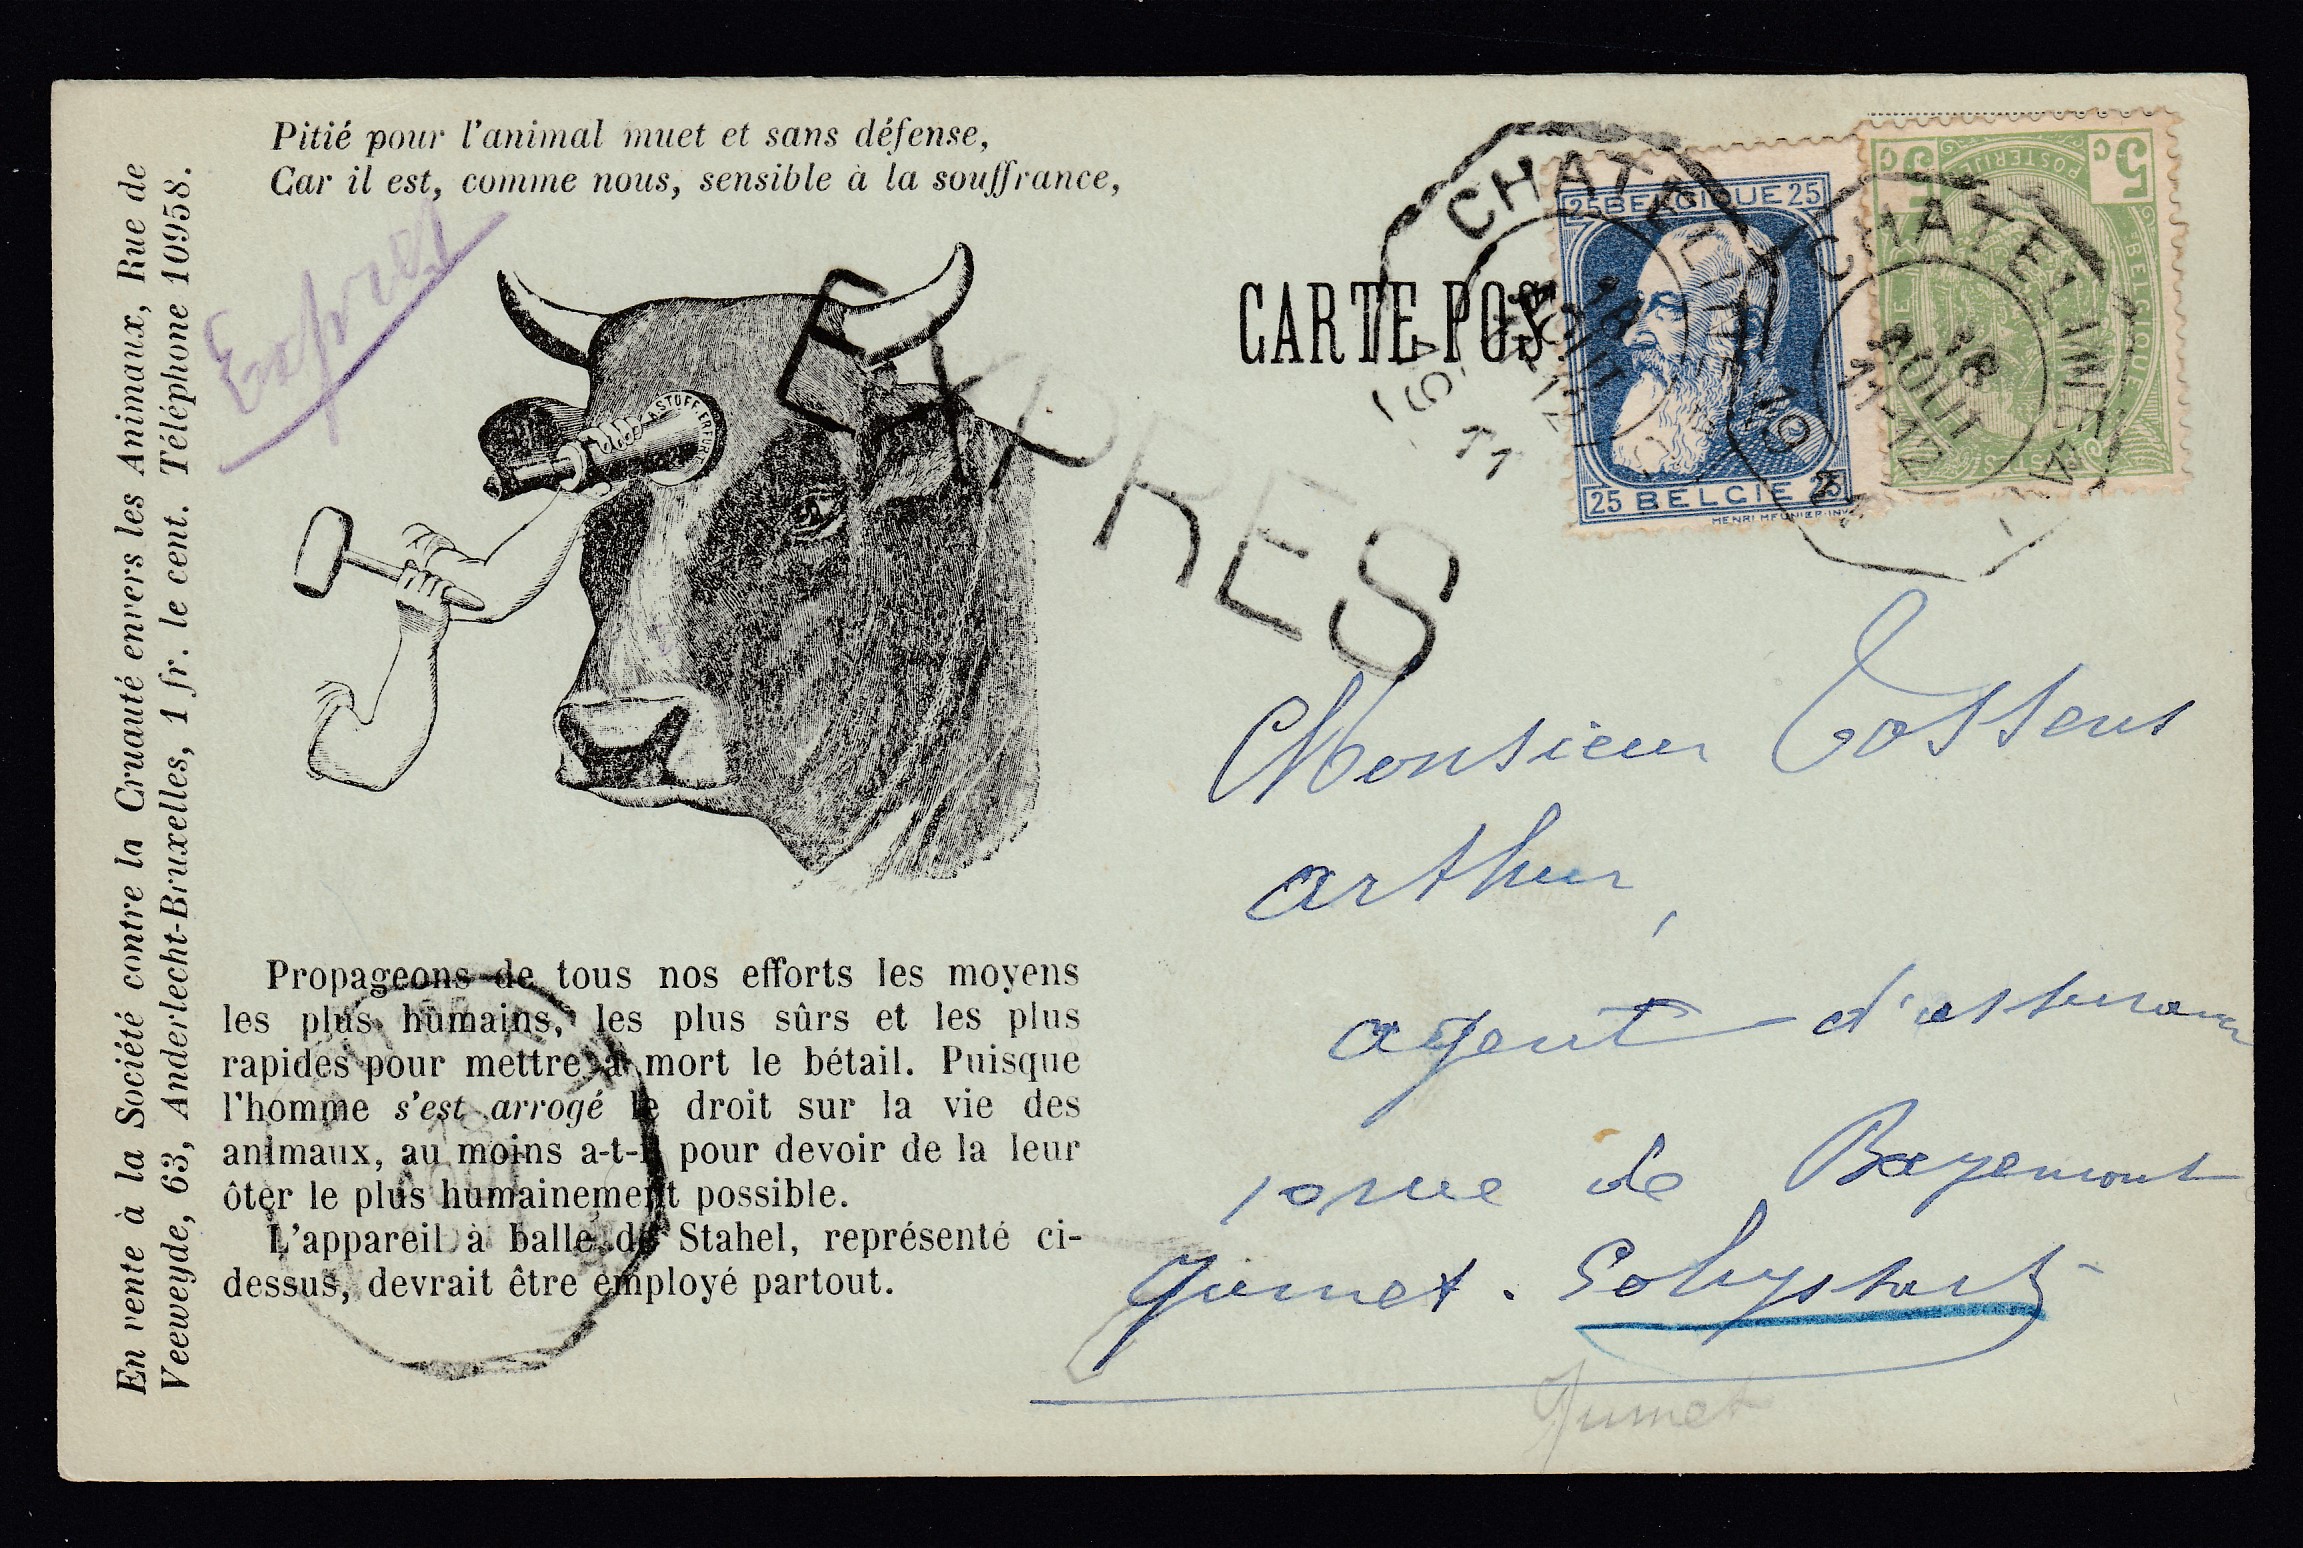 Pitié pour l'animal muet et sans défense,
Car il est, comme nous, sensible à la souffrance,
En vente à la Société contre la Cruauté envers les Animaux, Rue de
Veeweyde, 63, Anderlecht-Bruxelles, 1 fr. le cent. Téléphone 10958.
Exprès
EXPRES
ASTOFF. ERFURT
CARTE POS
CHATELINEAU
18
AOUT
11-12
19 11
25 BELGIQUE 25
25 BELGIE 25
HENRI MEUNIER-INV
CHATELINEAU
18
AOUT
11-12
5c 5c
POSTERIJEN
BELGIQUE
Monsieur Tossens
Arthur,
agent d'assurance
10 rue de Bayemont
Jumet. Gohyssart
Jumet
Propageons de tous nos efforts les moyens
les plus humains, les plus sûrs et les plus
rapides pour mettre à mort le bétail. Puisque
l'homme s'est arrogé le droit sur la vie des
animaux, au moins a-t-il pour devoir de la leur
ôter le plus humainement possible.
L'appareil à balle de Stahel, représenté ci-
dessus, devrait être employé partout.
JUMET
18
AOUT